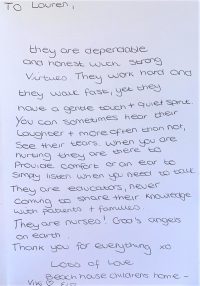 TO Lauren,
they are dependable
and honest with strong
Virtues They work hard and
they walk fast, yet they
have a gentle touch + quiet spirit.
You can sometimes hear their
Laughter + more often than not,
See their tears. When you are
hurting they are there to
Provide comfort or an ear to
Simply listen when you need to talk.
They are educators, never
coming to share their knowledge
with patients + families.
They are nurses! God's angels
on earth.
Thank you for everything xo
Lots of Love
Beach house childrens home -
Viki